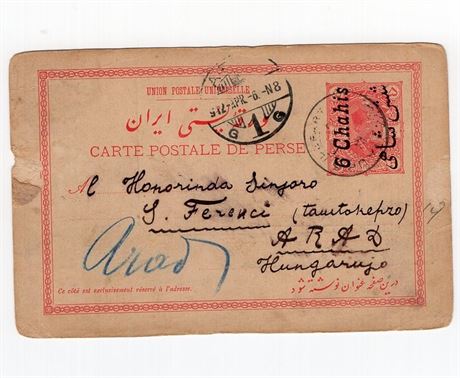 UNION POSTALE UNIVERSELLE
پستی ایران
CARTE POSTALE DE PERSE
6 Chahis
شش شاهی
912 APR.-6.-N8
G 1 G
Al Honorinda Sinjoro
S. Ferenci (tanitokepzo)
ARAD
Hungarujo
Arad
Ce côté est exclusivement réservé à l'adresse.
درین صفحه عنوان نوشته شود